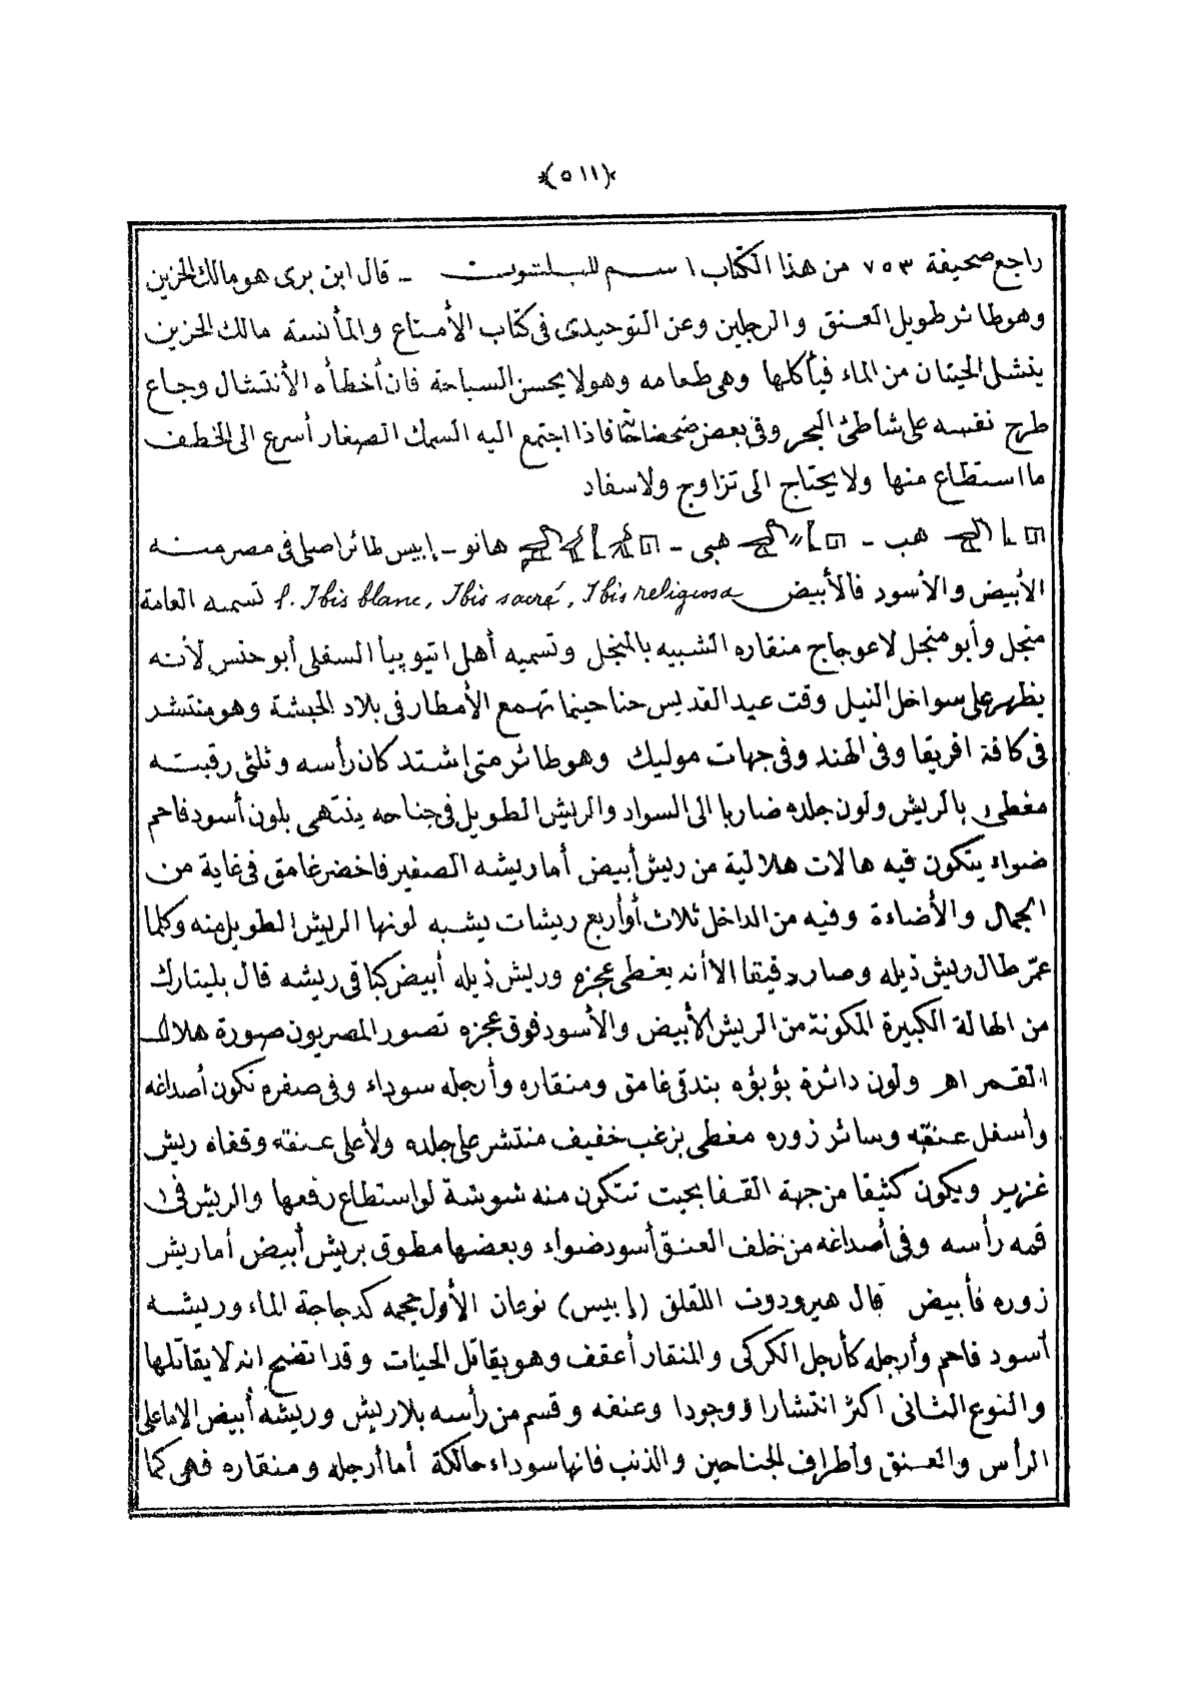 ﴿٥١١﴾
راجع صحيفة ٧٥٣ من هذا الكتاب اسم للبلشويت – قال ابن برى هو مالك الحزين
وهو طائر طويل العنق والرجلين وعن التوحيدى فى كتاب الأمتاع والمأنسة مالك الحزين
ينشل الحيتان من الماء فيأكلها وهى طعامه وهو لا يحسن السباحة فان أخطأه الأنتشال وجاع
طرح نفسه على شاطئ البحر وفى بعض ضحضاحاته فاذا اجتمع اليه السمك الصغار أسرع الى الخطف
ما استطاع منها ولا يحتاج الى تزاوج ولا سفاد
هب – هبى – هانو – إبيس طائر اصلى فى مصر منه
الأبيض والأسود فالأبيض f. Ibis blanc, Ibis sacré, Ibis religiosa تسميه العامة
منجل وأبو منجل لاعوجاج منقاره الشبيه بالمنجل وتسميه أهل اتيوپيا السفلى أبو حنس لأنه
يظهر على سواحل النيل وقت عيد القديس حنا حينما تهمع الأمطار فى بلاد الحبشة وهو منتشر
فى كافة افريقا وفى الهند وفى جهات موليك وهو طائر متى اشتد كان رأسه وثلثى رقبته
مغطى بالريش ولون جلده ضاربا الى السواد والريش الطويل فى جناحه ينتهى بلون أسود فاحم
ضواء يتكون فيه هالات هلالية من ريش أبيض أما ريشه الصغير فاخضر غامق فى غاية من
الجمال والأضاءة وفيه من الداخل ثلاث أو أربع ريشات يشبه لونها الريش الطويل منه وكلما
عمّر طال ريش ذيله وصار دقيقا الا أنه يغطى عجزه وريش ذيله أبيض كباقى ريشه قال بليتارك
من الهالة الكبيرة المكونة من الريش الأبيض والأسود فوق عجزه تصور المصريون صورة هلال
القمر اهـ ولون دائرة بؤبؤه بندقى غامق ومنقاره وأرجله سوداء وفى صغره تكون أصداغه
وأسفل عنقه وسائر زوره مغطى بزغب خفيف منتشر على جلده ولأعلى عنقه وقفاه ريش
غزير ويكون كثيفا من جهة القفا بحيث تتكون منه شوشة لو استطاع رفعها والريش فى
قمه رأسه وفى أصداغه من خلف العنق أسود ضواء وبعضها مطوق بريش أبيض أما ريش
زوره فأبيض قال هيرودوت اللقلق (إبيس) نوعان الأول حجمه كدجاجة الماء وريشه
أسود فاحم وأرجله كأرجل الكركى والمنقار أعقف وهو يقاتل الحيات وقد اتضح انه لا يقاتلها
والنوع الثانى اكثر انتشارا ووجودا وعنقه وقسم من رأسه بلا ريش وريشه أبيض الا ما على
الرأس والعنق وأطراف الجناحين والذنب فانها سوداء حالكة أما أرجله ومنقاره فهى كما